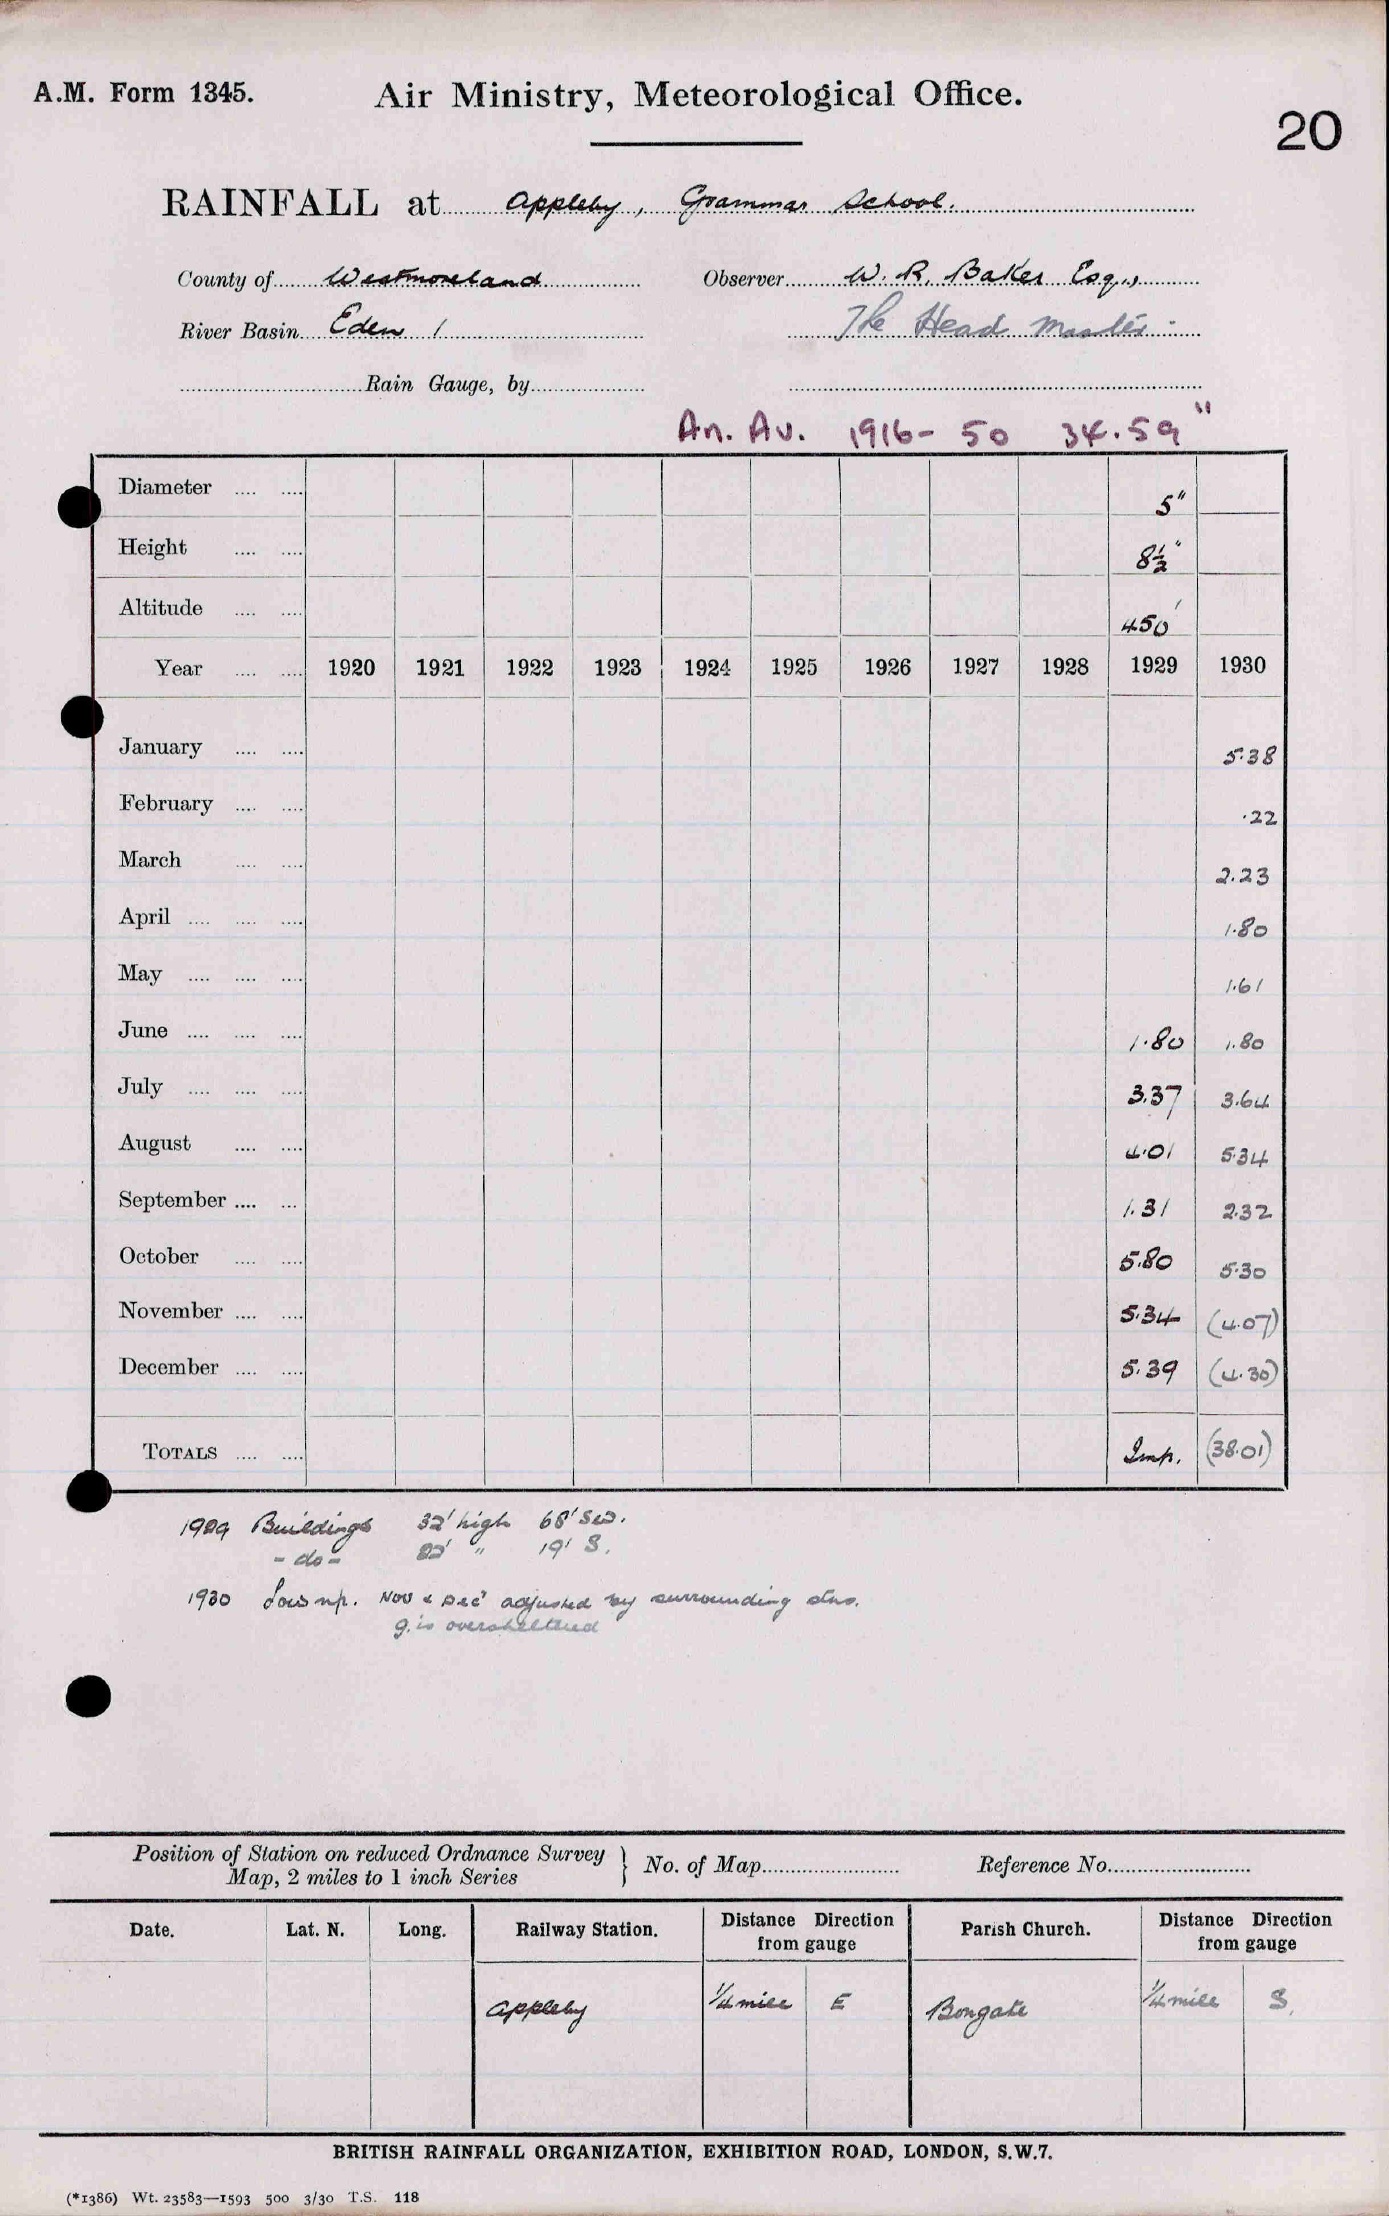 A.M. Form 1345. Air Ministry, Meteorological Office.
20
RAINFALL at Appleby, Grammar School.
County of Westmoreland Observer W. R. Baker Esq.,
River Basin Eden 1 The Head Master
Rain Gauge, by
An. Av. 1916-50 34.59"
Diameter .... .... 5"
Height .... .... 8½"
Altitude .... .... 450'
Year .... .... 1920 1921 1922 1923 1924 1925 1926 1927 1928 1929 1930
January .... .... 5.38
February .... .... .22
March .... .... 2.23
April .... .... .... 1.80
May .... .... .... 1.61
June .... .... .... 1.80 1.80
July .... .... .... 3.37 3.64
August .... .... 4.01 5.34
September .... ... 1.31 2.32
October .... .... 5.80 5.30
November .... .... 5.34 (4.07)
December .... .... 5.39 (4.30)
TOTALS .... .... Imp. (38.01)
1929 Buildings 32' high 68' SW.
- do - " 19' S.
1930 Nov & Dec adjusted by surrounding stns.
g. is oversheltered
Position of Station on reduced Ordnance Survey
Map, 2 miles to 1 inch Series } No. of Map Reference No.
Date. Lat. N. Long. Railway Station. Distance Direction from gauge Parish Church. Distance Direction from gauge
Appleby ¼ mile E Bongate ¼ mile S.
BRITISH RAINFALL ORGANIZATION, EXHIBITION ROAD, LONDON, S.W.7.
(*1386) Wt. 23583—1593 500 3/30 T.S. 118